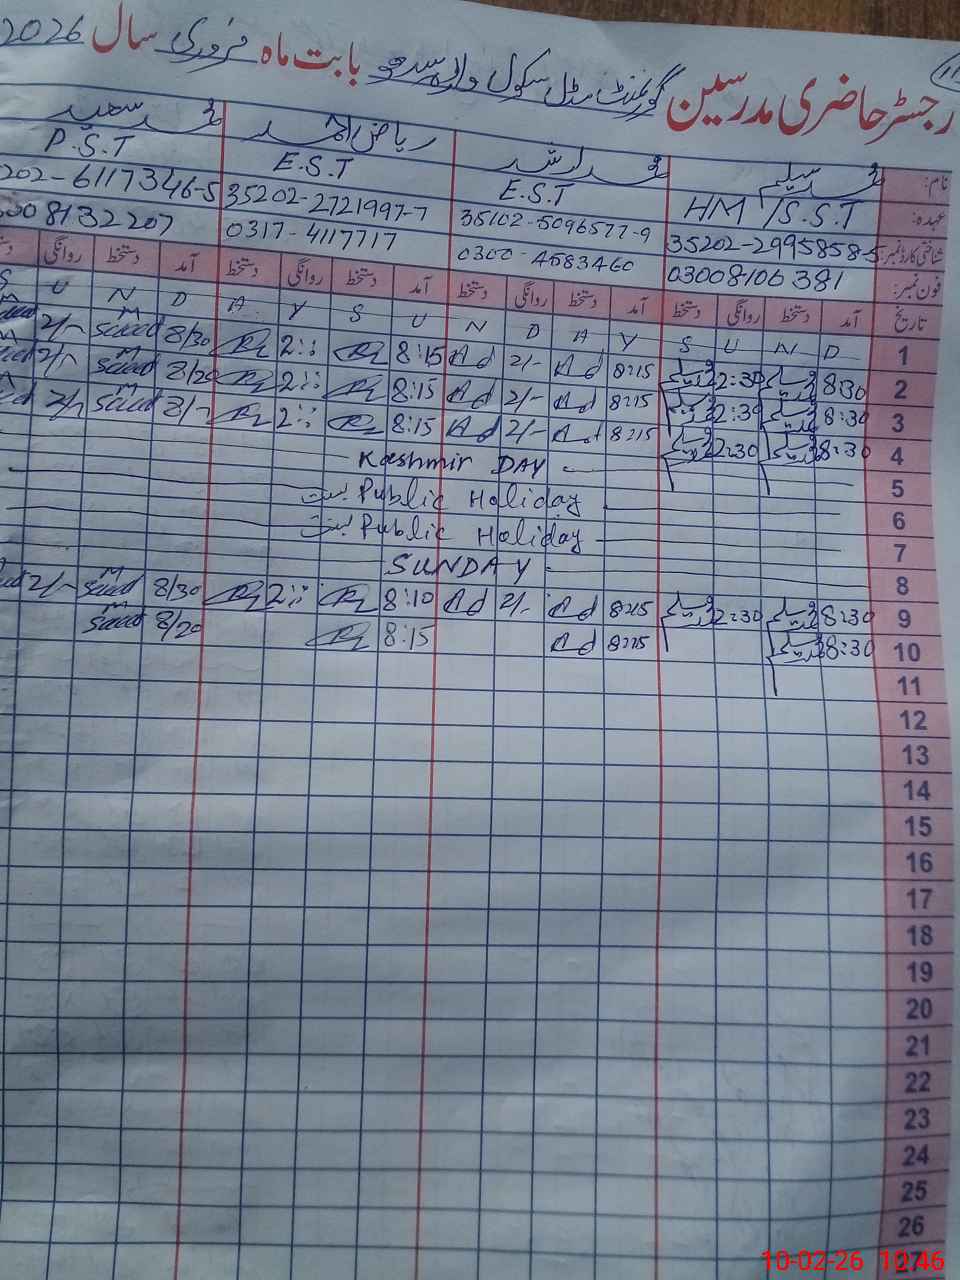 رجسٹر حاضری مدرسین گورنمنٹ مڈل سکول بابت ماہ فروری سال 2026
نام: محمد سلیم محمد ارشد ریاض احمد محمد سعید
عہدہ: HM / S.S.T E.S.T E.S.T P.S.T
شناختی کارڈ نمبر: 35202-2995858-5 35102-5096577-9 35202-2721997-7 202-6117346-5
فون نمبر: 03008106381 0300-4583460 0317-4117717 008132207
تاریخ آمد دستخط روانگی دستخط آمد دستخط روانگی دستخط آمد دستخط روانگی دستخط آمد دستخط روانگی
1 S U N D A Y S U N D A Y S U N D
2 8:30 2:30 8:15 Ad 2/- Ad 8:15 2:: 8/30 Saeed 2/-
3 8:30 2:30 8:15 Ad 2/- Ad 8:15 2:: 8/20 Saeed 2/-
4 8:30 2:30 8:15 Ad 2/- Ad 8:15 2:: 8/- Saeed 2/-
5 Kashmir DAY
6 Public Holiday
7 Public Holiday
8 SUNDAY
9 8:30 2:30 8:15 Ad 2/- Ad 8:10 2:: 8/30 Saeed 2/-
10 8:30 8:15 Ad 8:15 8/20 Saeed
11
12
13
14
15
16
17
18
19
20
21
22
23
24
25
26
27
10-02-26 10:46